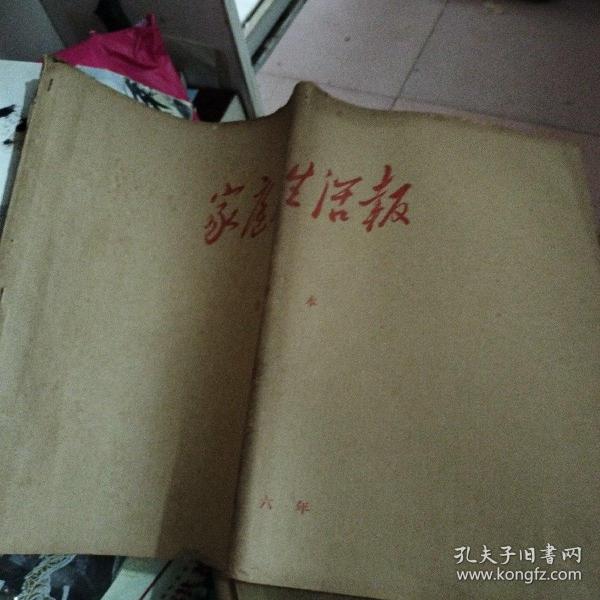 家庭生活报
本
六年
孔夫子旧书网
www.kongfz.com